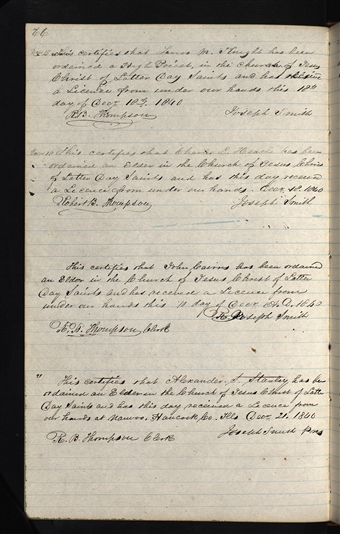 76
This certifies that James M. has been
ordained a High Priest, in the church of Jesus
Christ of Latter Day Saints and has
a Licence from under our hands this 10th
day of Decr 10th, 1840
R. B. Thompson Joseph Smith
This certifies that Charles has been
ordained an Elder in the Church of Jesus Chris
of Latter Day Saints and has this day receive
a Licence from under our hands. Decr 1840
Robert B. Thompson, Joseph Smith
This certifies that John Cairns has been ordaine
an Elder in the Church of Jesus Christ of Latter
Day Saints and has received a Licence from
under our hands this 11 day of Decr A.D. 1840
Joseph Smith
R. B. Thompson, Clerk
This certifies that Alexander S. Stanley has be
ordained an Elder in the Church of Jesus Christ of Latte
Day Saints and has this day received a Licence from
our hands at Nauvoo, Hancock Co. Ills Decr 21. 1840
Joseph Smith Pres
R. B. Thompson Clerk